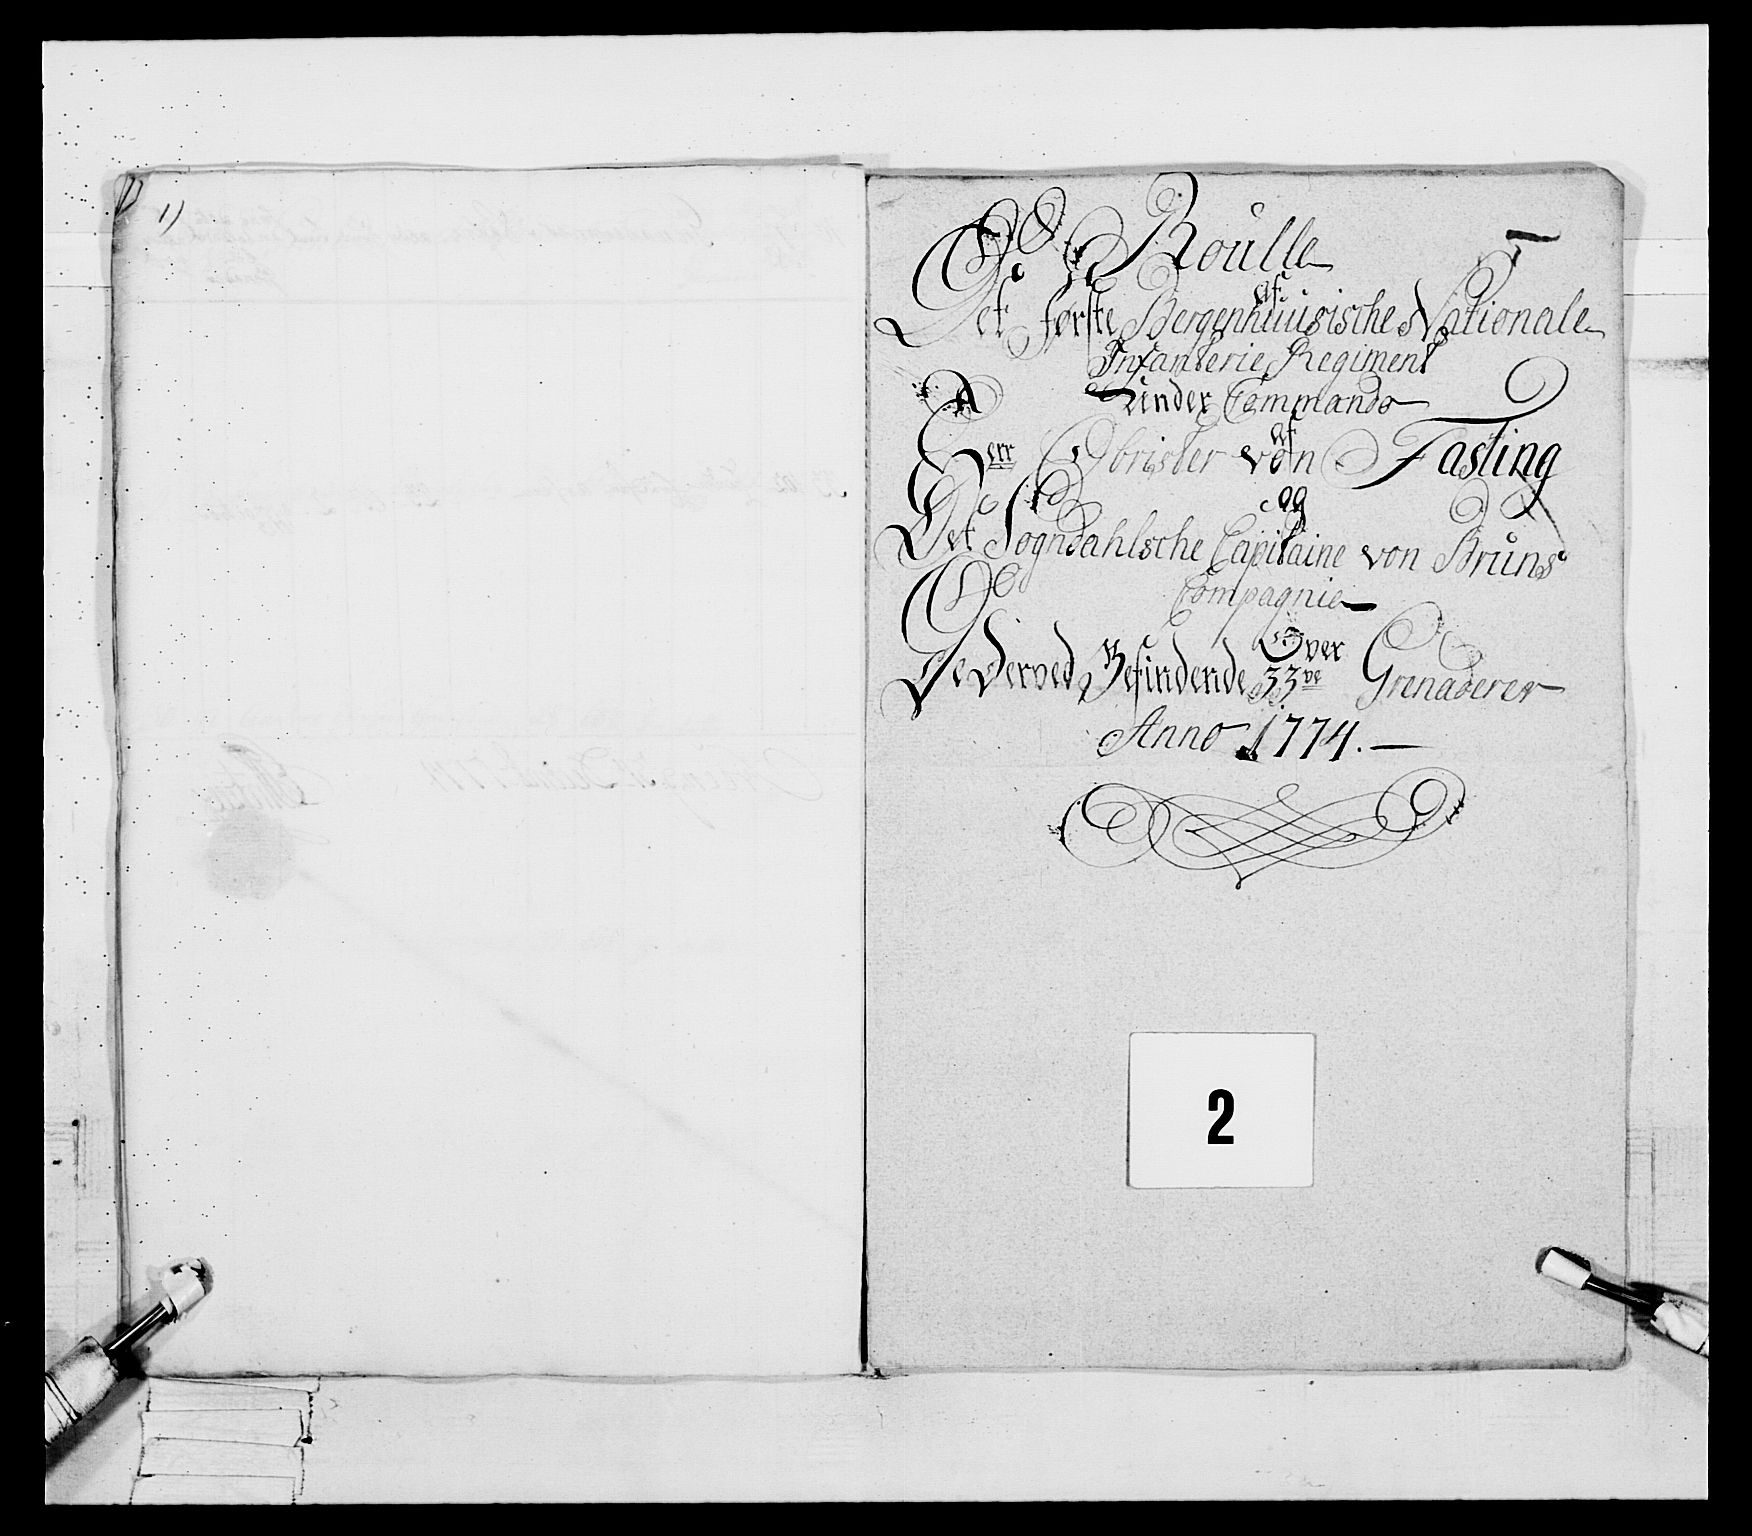 1)
Roulle
af
Det første Bergenhuusische Nationale
Infanterie Regiment
Under Commando
af
Herr Obrister von Fasting
og
Det Sogndahlsche Capitaine von Bruns
Compagnie
Over
De Derved Befindende 33ve Grenaderer
Anno 1774.
2